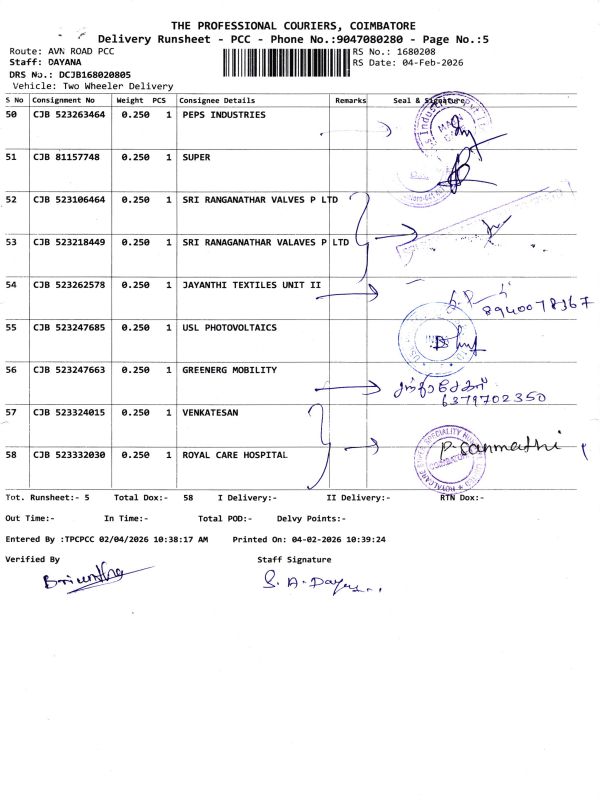 THE PROFESSIONAL COURIERS, COIMBATORE
Delivery Runsheet - PCC - Phone No.:9047080280 - Page No.:5
Route: AVN ROAD PCC RS No.: 1680208
Staff: DAYANA RS Date: 04-Feb-2026
DRS No.: DCJB168020805
Vehicle: Two Wheeler Delivery
S No Consignment No Weight PCS Consignee Details Remarks Seal & Signature
50 CJB 523263464 0.250 1 PEPS INDUSTRIES
51 CJB 81157748 0.250 1 SUPER
52 CJB 523106464 0.250 1 SRI RANGANATHAR VALVES P LTD
53 CJB 523218449 0.250 1 SRI RANAGANATHAR VALAVES P LTD
54 CJB 523262578 0.250 1 JAYANTHI TEXTILES UNIT II
8940078367
55 CJB 523247685 0.250 1 USL PHOTOVOLTAICS
56 CJB 523247663 0.250 1 GREENERG MOBILITY
6379702350
57 CJB 523324015 0.250 1 VENKATESAN
P. Sanmathi
58 CJB 523332030 0.250 1 ROYAL CARE HOSPITAL
Tot. Runsheet:- 5 Total Dox:- 58 I Delivery:- II Delivery:- RTN Dox:-
Out Time:- In Time:- Total POD:- Delvy Points:-
Entered By :TPCPCC 02/04/2026 10:38:17 AM Printed On: 04-02-2026 10:39:24
Verified By Staff Signature